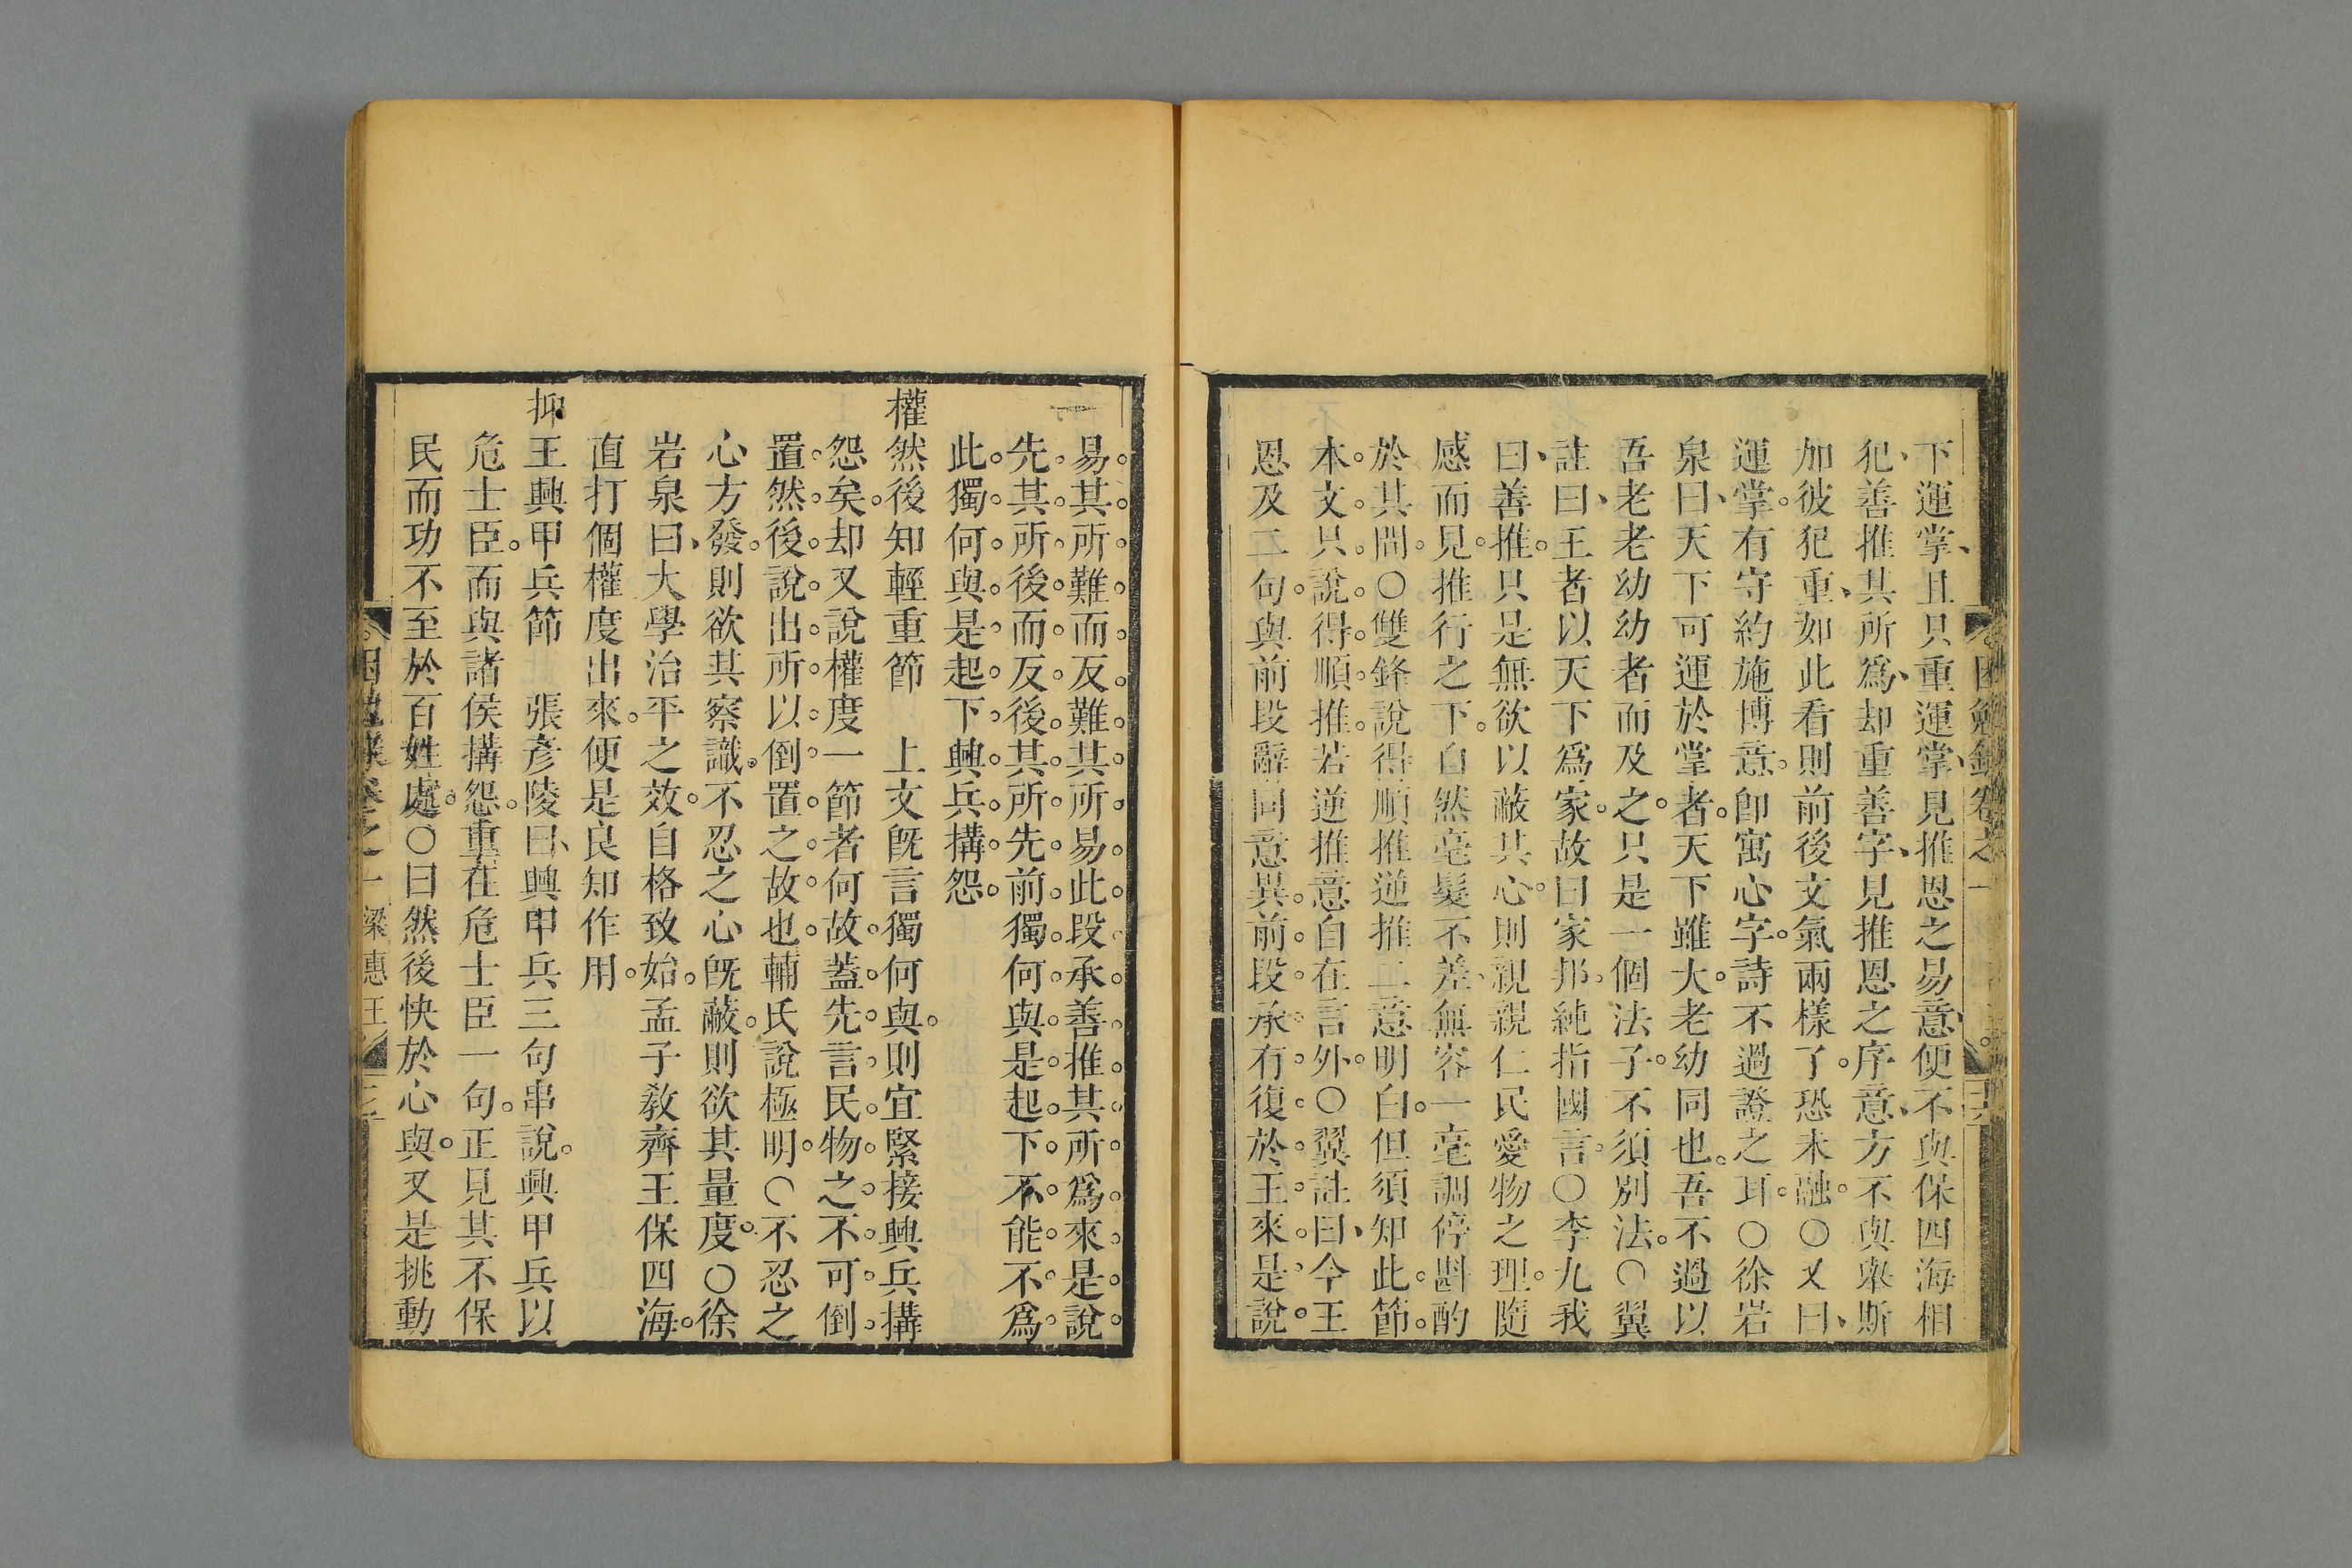 下運掌、且只重運掌、見推恩之易意、便不與保四海相
犯、善推其所爲、却重善字、見推恩之序意、方不與舉斯
加彼犯重、如此看則前後文氣兩樣了。恐未融。○又曰、
運掌。有守約施博意。卽寓心字。詩不過證之耳。○徐岩
泉曰、天下可運於掌者。天下雖大。老幼同也。吾不過以
吾老老幼幼者而及之。只是一個法子。不須別法。○翼
註曰、王者以天下爲家。故曰家邦。純指國言。○李九我
曰、善推。只是無欲以蔽其心。則親親仁民愛物之理。隨
感而見。推行之下。自然毫髮不差、無容一毫調停斟酌
於其間。○雙鋒說得順推逆推二意明白。但須知此節。
本。文。只。說。得。順。推。若逆推意自在言外。○翼註曰、今王
恩及二句。與前段辭同意異。前。段。承。有。復。於。王。來。是。說。
易。其。所。難。而。反。難。其。所。易。此。段。承。善。推。其。所。爲。來。是。說。
先。其。所。後。而。反。後。其。所。先。前。獨。何。與。是。起。下。不。能。不。爲。
此。獨。何。與。是。起。下。興。兵。搆。怨。
權然後知輕重節　上文旣言獨何與。則宜緊接興兵搆
怨矣。却又說權度一節者何故。蓋。先。言。民。物。之。不。可。倒。
置。然。後。說。出。所。以。倒。置。之。故。也。輔氏說極明。○不忍之
心方發。則欲其察識。不忍之心旣蔽。則欲其量度。○徐
岩泉曰、大學治平之效。自格致始。孟子教齊王保四海。
直打個權度出來。便是良知作用。
抑王興甲兵節　張彥陵曰、興甲兵三句串說。興甲兵以
危士臣。而與諸侯搆怨。重在危士臣一句。正見其不保
民而功不至於百姓處。○曰然後快於心與。又是挑動
因勉錄卷之一
卷之一 梁惠王